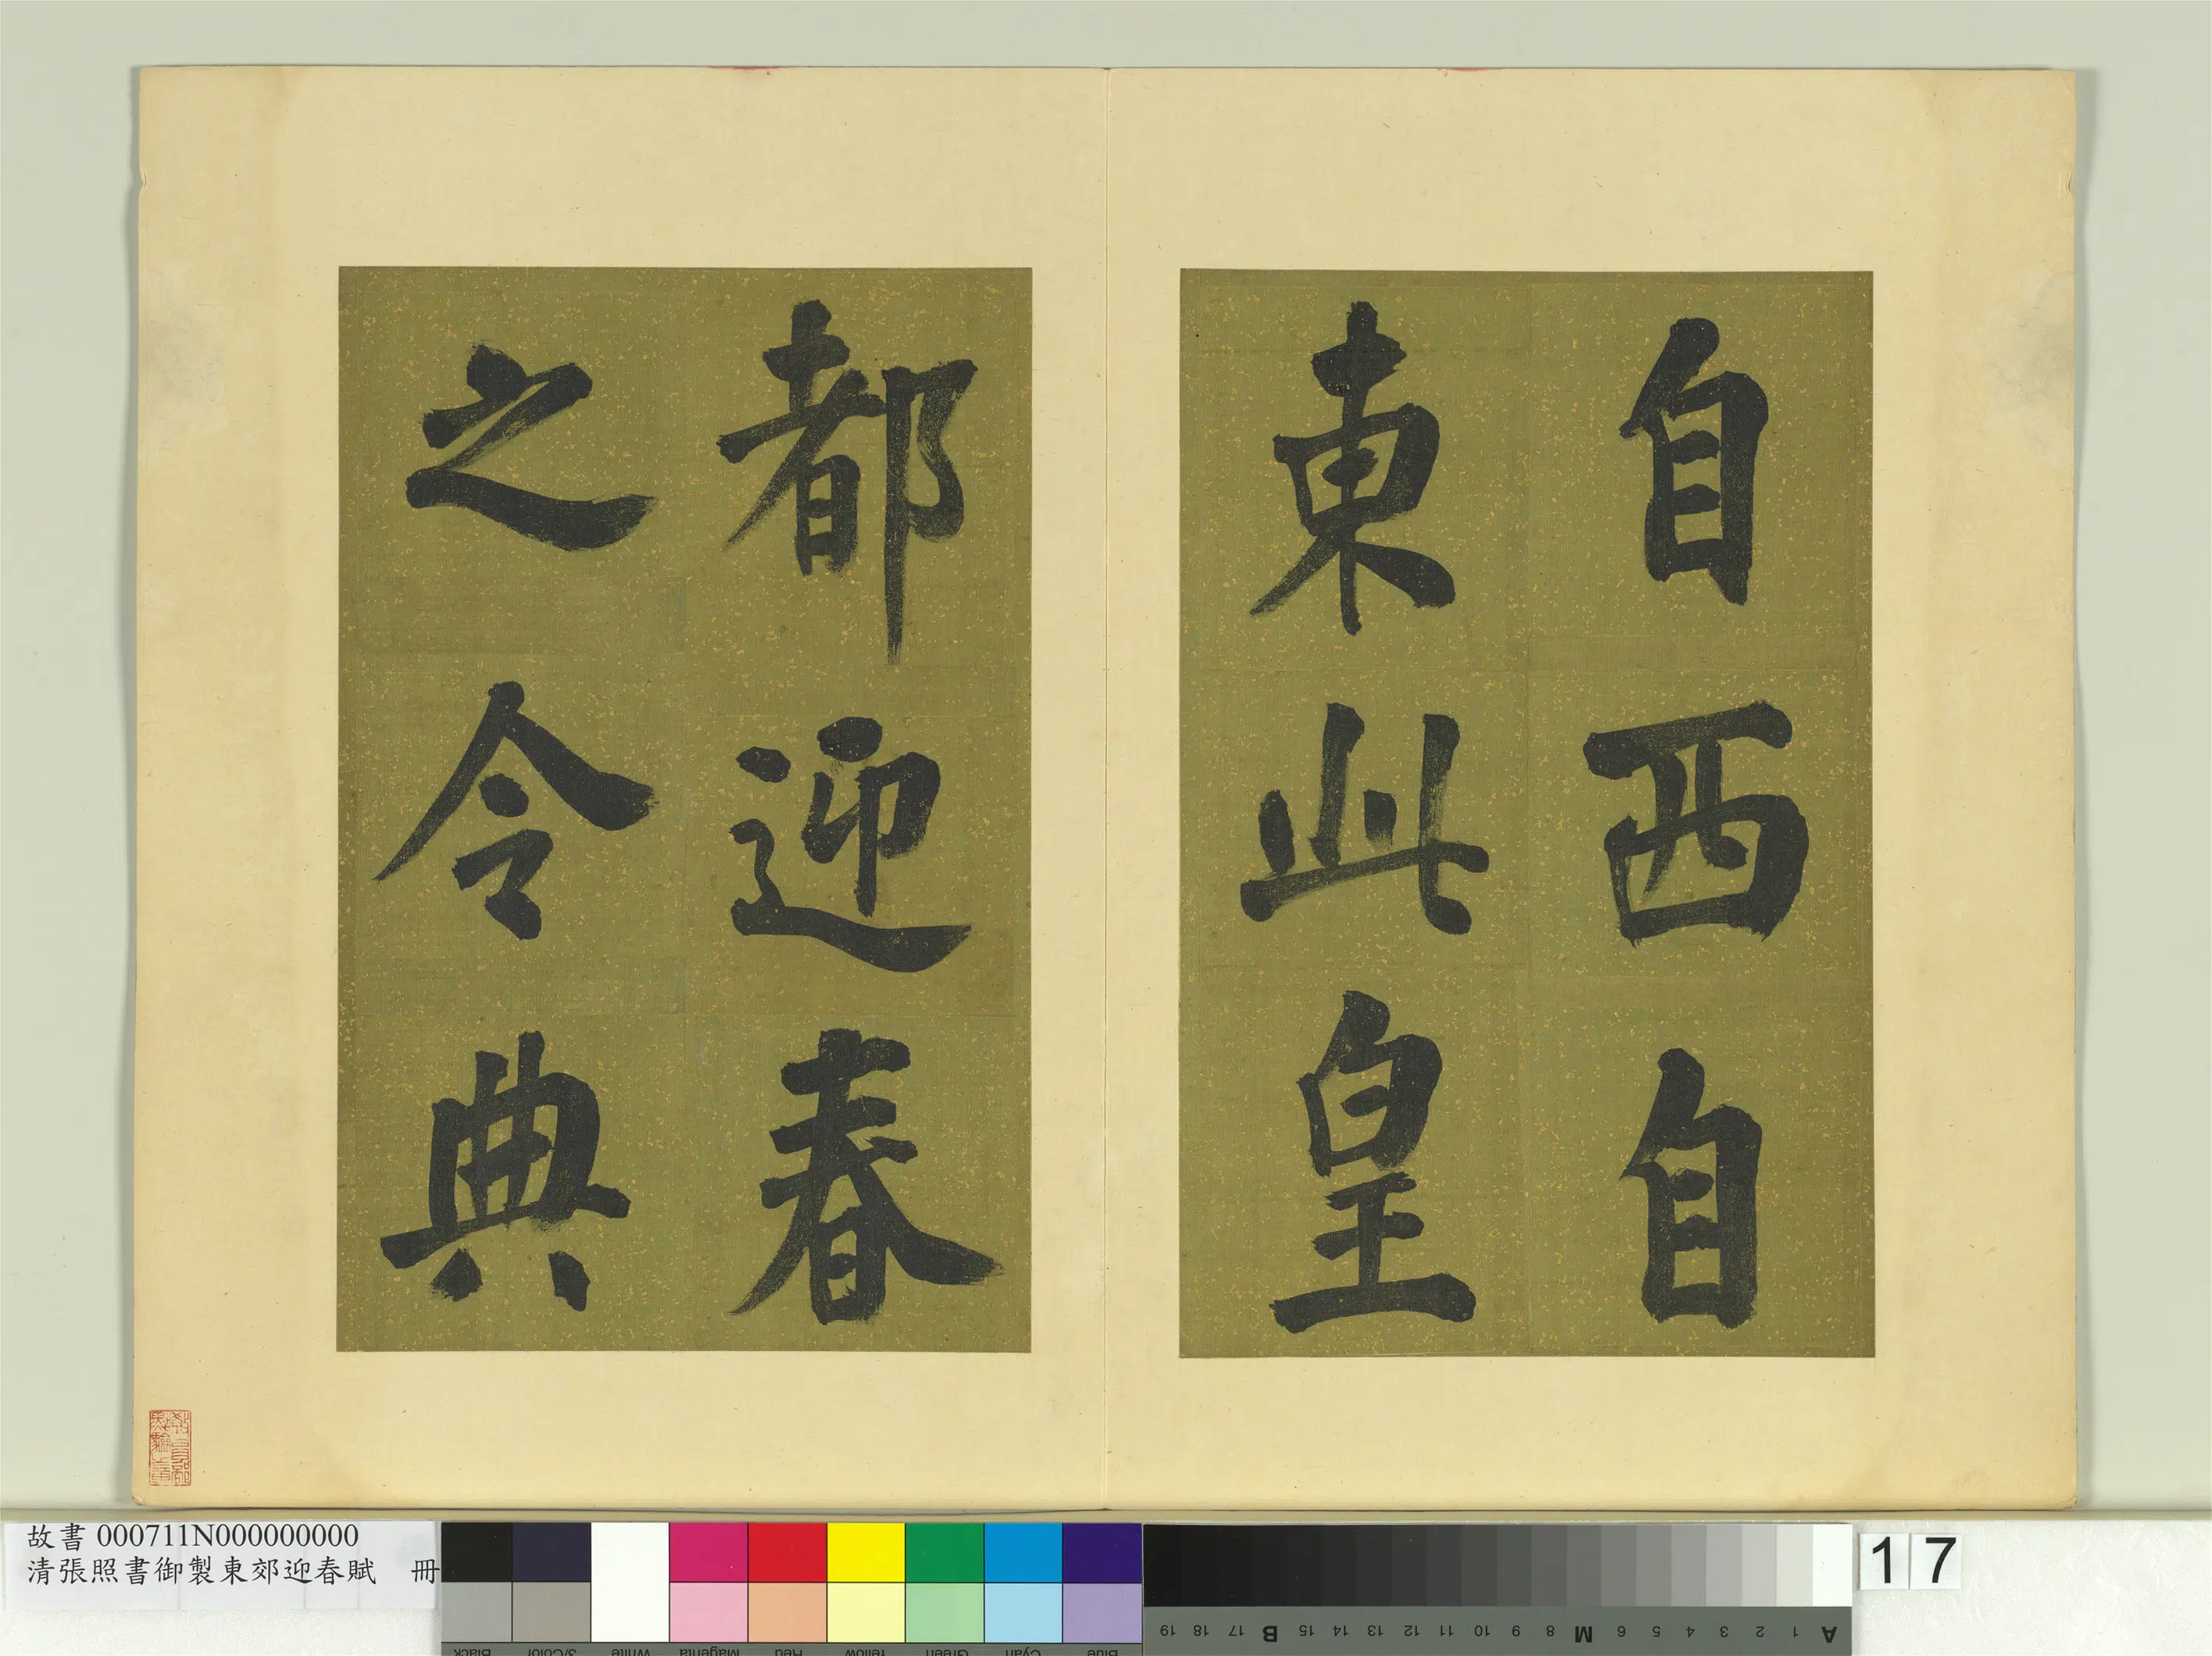 自西自
東此皇
都迎春
之令典
故書 000711N000000000
清張照書御製東郊迎春賦 冊
17
Black 3/Color White Magenta Red Yellow Green Cyan Blue
19 18 17 B 15 14 13 12 11 10 9 8 M 6 5 4 3 2 1 A